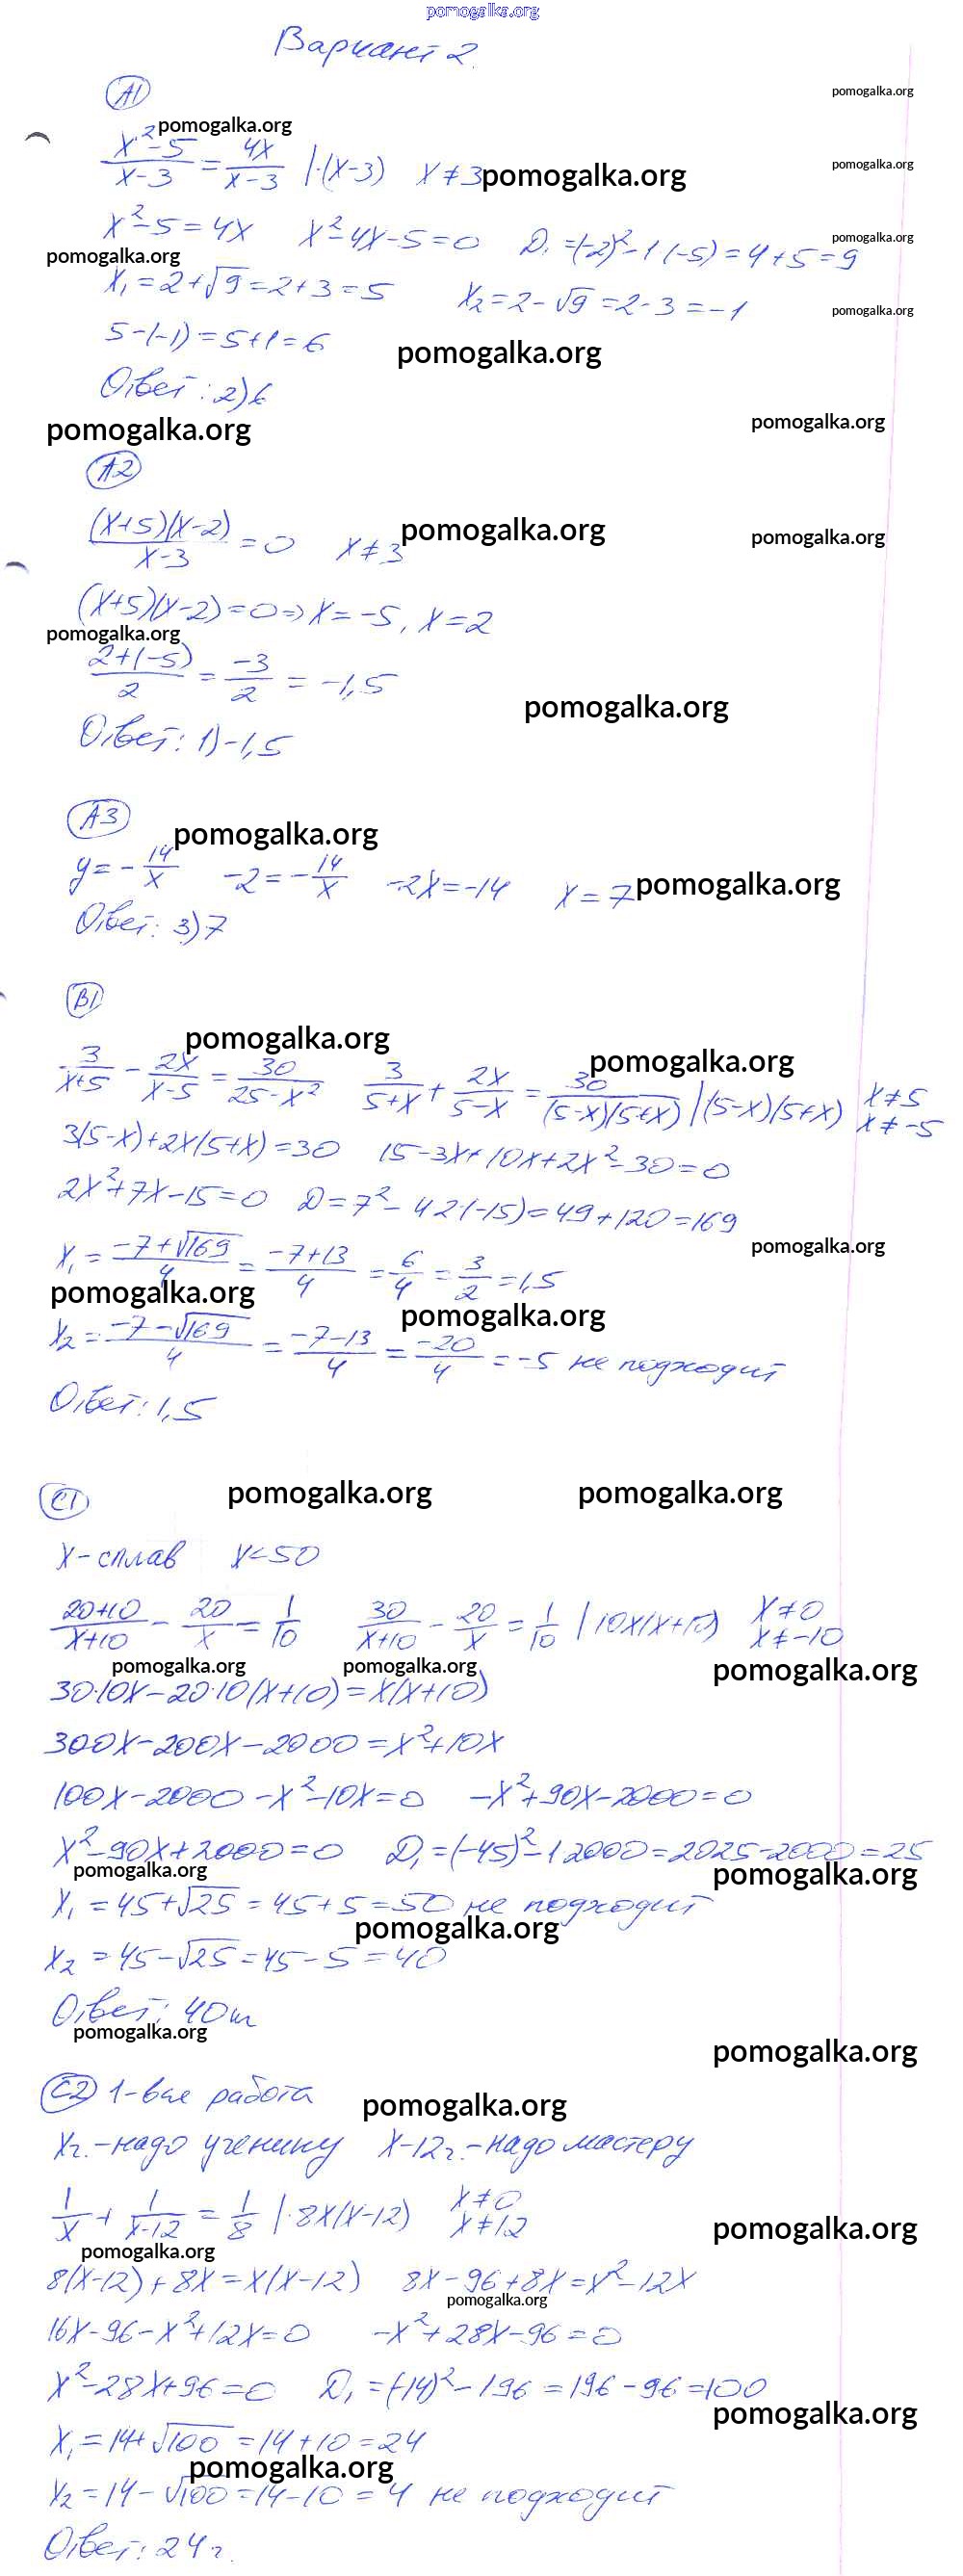 pomogalka.org
Вариант 2.
А1
pomogalka.org
pomogalka.org
(x²-5)/(x-3) = 4x/(x-3) |·(x-3) x≠3 pomogalka.org
pomogalka.org
x²-5=4x x²-4x-5=0 D₁=(-2)²-1(-5)=4+5=9
pomogalka.org
pomogalka.org
x₁=2+√9=2+3=5 x₂=2-√9=2-3=-1
pomogalka.org
5-(-1)=5+1=6
pomogalka.org
Ответ: 2)6
pomogalka.org
pomogalka.org
А2
(x+5)(x-2)/(x-3) = 0 x≠3
pomogalka.org
pomogalka.org
(x+5)(x-2)=0=>x=-5, x=2
pomogalka.org
(2+(-5))/2 = -3/2 = -1,5
pomogalka.org
Ответ: 1)-1,5
А3
pomogalka.org
y=-14/x -2=-14/x -2x=-14 x=7 pomogalka.org
Ответ: 3)7
В1
pomogalka.org
pomogalka.org
3/(x+5) - 2x/(x-5) = 30/(25-x²) 3/(5+x) + 2x/(5-x) = 30/((5-x)(5+x)) |(5-x)(5+x) x≠5 x≠-5
3(5-x)+2x(5+x)=30 15-3x+10x+2x²-30=0
2x²+7x-15=0 D=7²-4 2(-15)=49+120=169
pomogalka.org
x₁=(-7+√169)/4=(-7+13)/4=6/4=3/2=1,5
pomogalka.org
pomogalka.org
x₂=(-7-√169)/4=(-7-13)/4=-20/4=-5 не подходит
Ответ: 1,5
С1
pomogalka.org
pomogalka.org
x-сплав x<50
(20+10)/(x+10) - 20/x = 1/10 30/(x+10) - 20/x = 1/10 | 10x(x+10) x≠0 x≠-10
pomogalka.org
pomogalka.org
pomogalka.org
30·10x-20·10(x+10)=x(x+10)
300x-200x-2000=x²+10x
100x-2000-x²-10x=0 -x²+90x-2000=0
x²-90x+2000=0 D₁=(-45)²-1 2000=2025-2000=25
pomogalka.org
pomogalka.org
x₁=45+√25=45+5=50 не подходит
pomogalka.org
x₂=45-√25=45-5=40
Ответ: 40т
pomogalka.org
pomogalka.org
С2 1-вся работа
pomogalka.org
xч.-надо ученику x-12ч.-надо мастеру
1/x + 1/(x-12) = 1/8 |·8x(x-12) x≠0 x≠12
pomogalka.org
pomogalka.org
8(x-12)+8x=x(x-12) 8x-96+8x=x²-12x
pomogalka.org
16x-96-x²+12x=0 -x²+28x-96=0
x²-28x+96=0 D₁=(-14)²-196=196-96=100
pomogalka.org
x₁=14+√100=14+10=24
pomogalka.org
x₂=14-√100=14-10=4 не подходит
Ответ: 24ч.